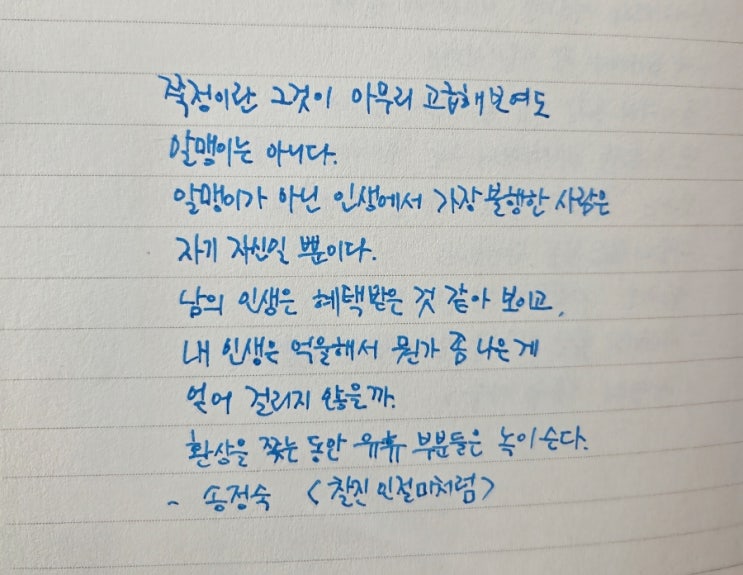 쭉정이란 그것이 아무리 고급해보여도
알맹이는 아니다.
알맹이가 아닌 인생에서 가장 불행한 사람은
자기 자신일 뿐이다.
남의 인생은 혜택받은 것 같아 보이고,
내 인생은 억울해서 뭔가 좀 나은게
얻어 걸리지 않을까.
환상을 쫓는 동안 유휴 부분들은 녹이슨다.
- 송정숙 <찰진 인절미처럼>